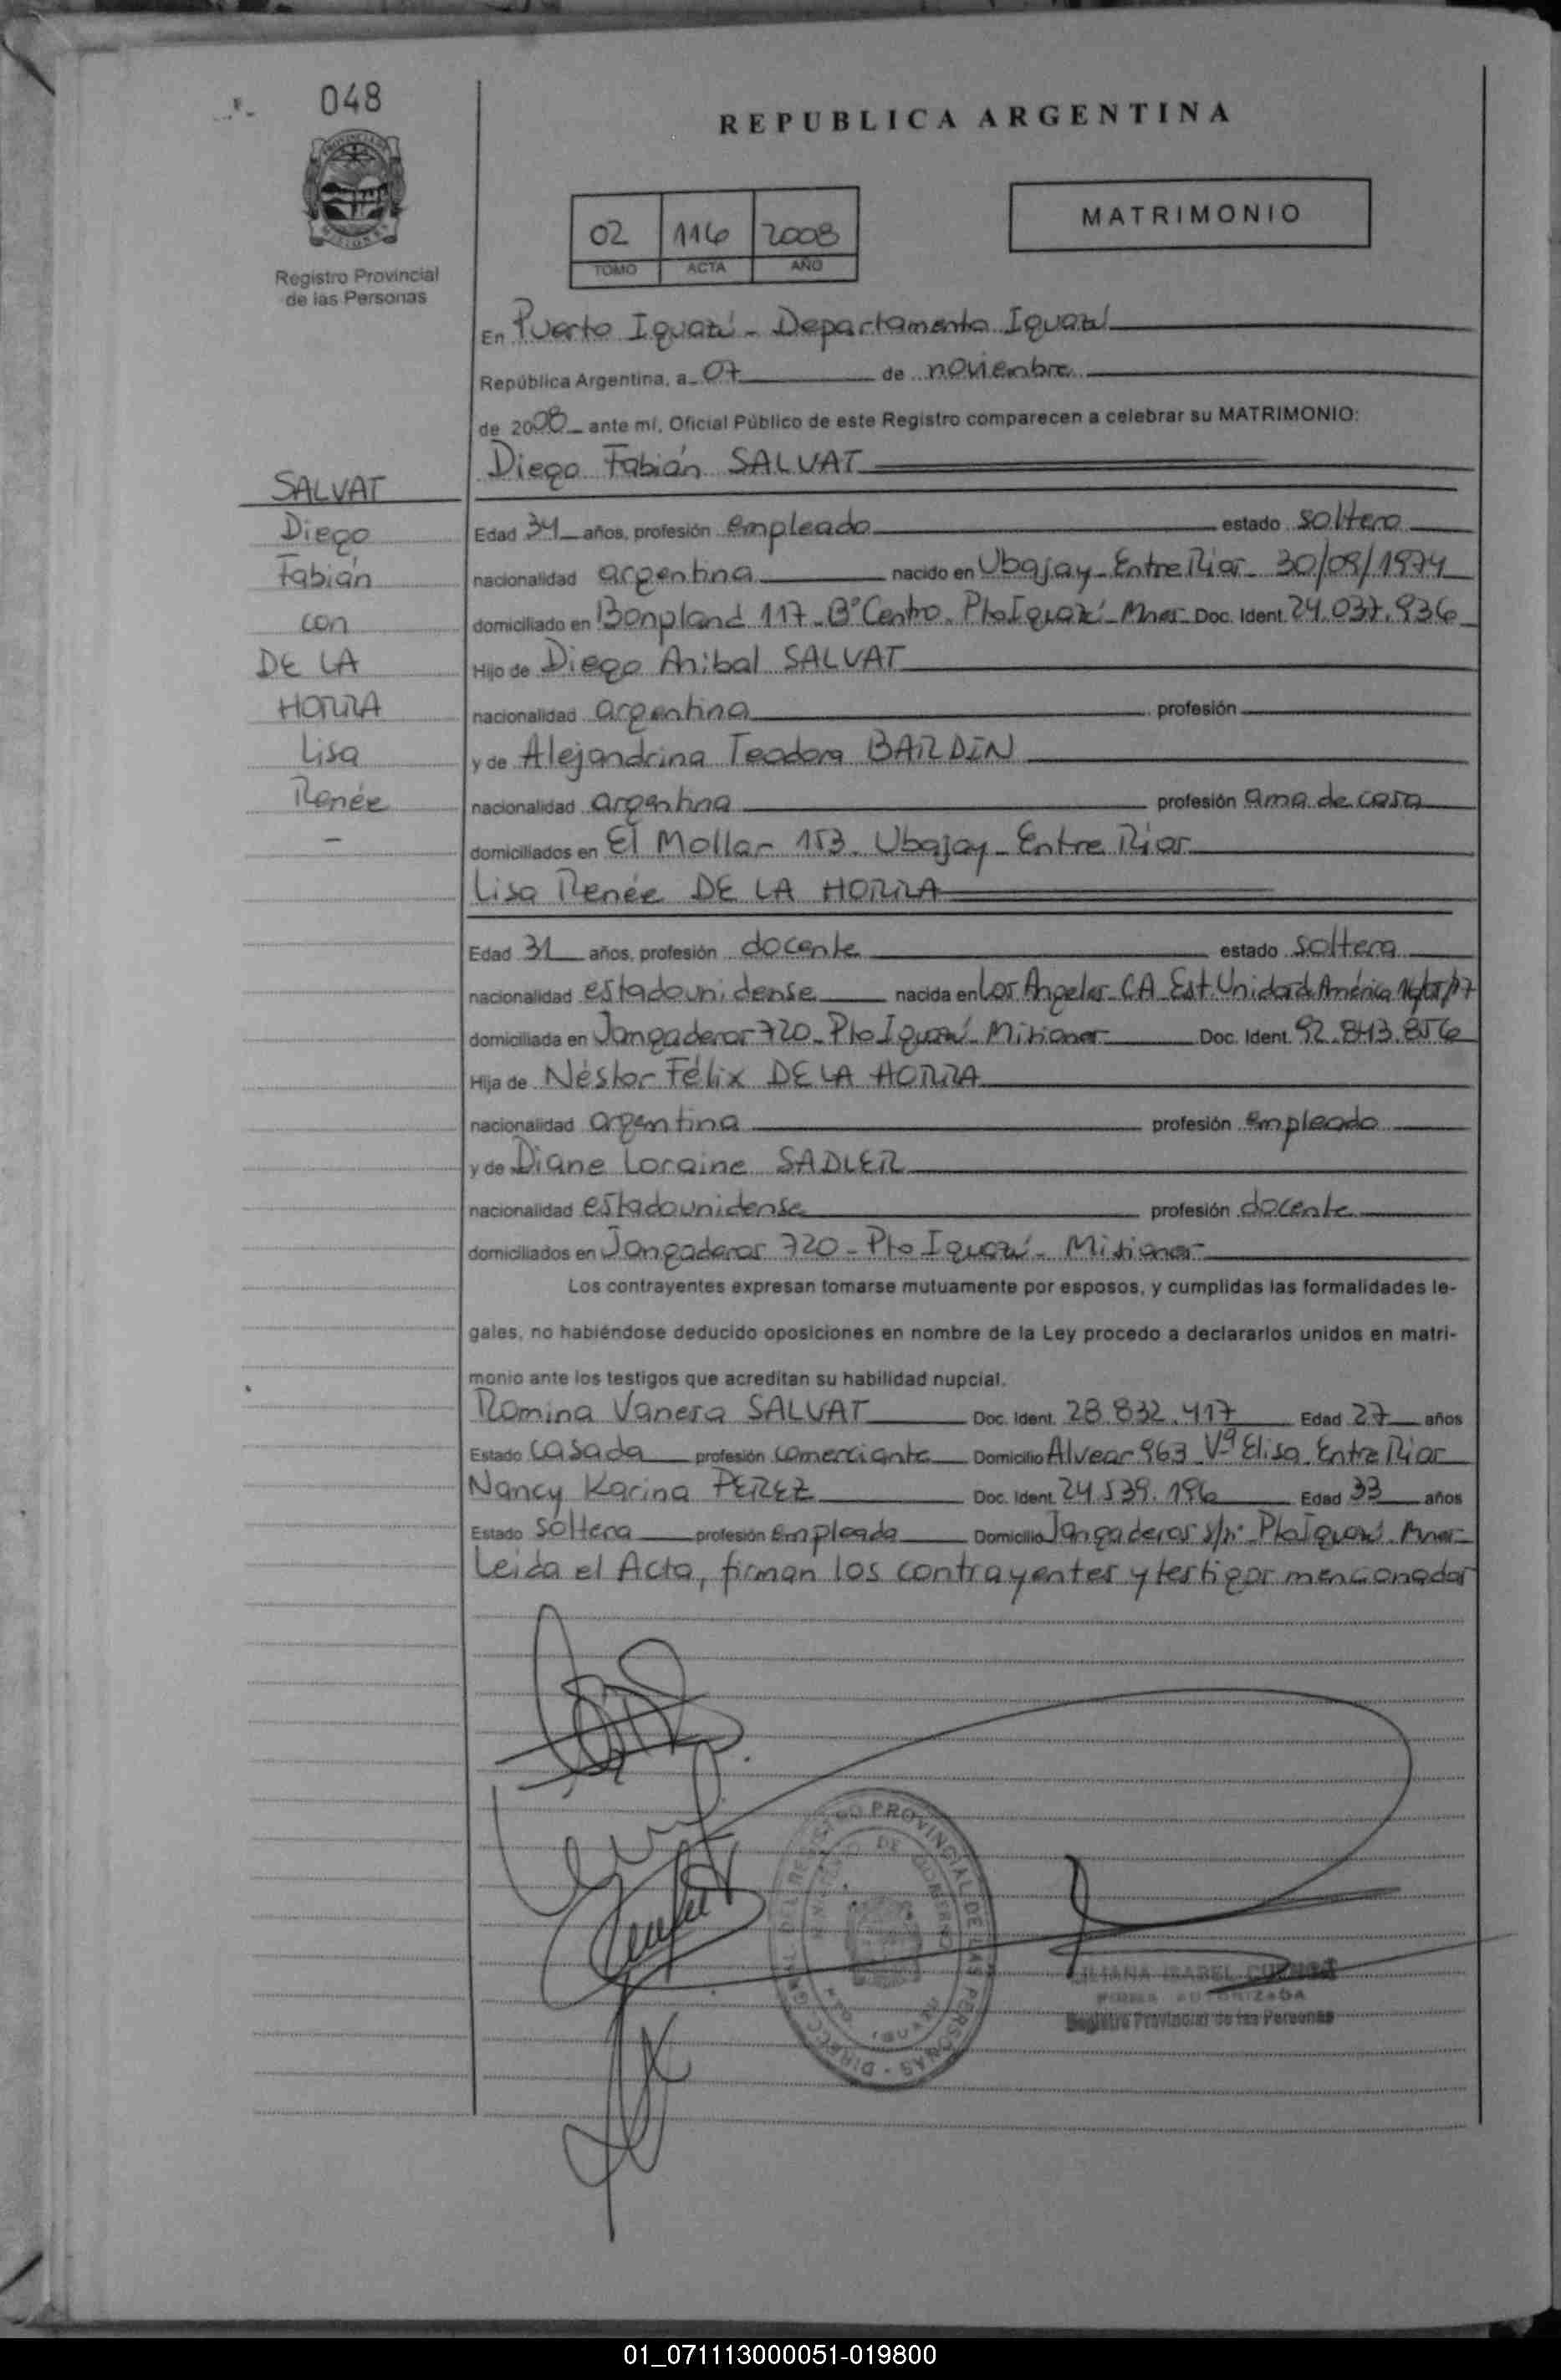 048
REPUBLICA ARGENTINA
MATRIMONIO
02 116 2008
TOMO ACTA AÑO
Registro Provincial
de las Personas
En Puerto Iguazú - Departamento Iguazú
República Argentina, a 07 de noviembre
de 2008 ante mí, Oficial Público de este Registro comparecen a celebrar su MATRIMONIO:
Diego Fabián SALVAT
SALVAT
Diego
Fabián
con
DE LA
HORRA
Lisa
Renée
Edad 34 años, profesión empleado estado soltero
nacionalidad argentina nacido en Ubajay - Entre Ríos - 30/09/1974
domiciliado en Bonpland 117 - Bº Centro - Pto Iguazú - Mnes - Doc. Ident. 24.037.936
Hijo de Diego Anibal SALVAT
nacionalidad argentina profesión
y de Alejandrina Teodora BARDIN
nacionalidad argentina profesión ama de casa
domiciliados en El Mollar 153 - Ubajay - Entre Ríos
Lisa Renée DE LA HORRA
Edad 31 años, profesión docente estado soltera
nacionalidad estadounidense nacida en Los Angeles - CA - Est. Unidos de América
domiciliada en Jangaderos 720 - Pto Iguazú - Misiones Doc. Ident. 92.843.856
Hija de Néstor Félix DE LA HORRA
nacionalidad argentina profesión empleado
y de Diane Loraine SADLER
nacionalidad estadounidense profesión docente
domiciliados en Jangaderos 720 - Pto Iguazú - Misiones
Los contrayentes expresan tomarse mutuamente por esposos, y cumplidas las formalidades le-
gales, no habiéndose deducido oposiciones en nombre de la Ley procedo a declararlos unidos en matri-
monio ante los testigos que acreditan su habilidad nupcial.
Romina Vanesa SALVAT Doc. Ident. 28.832.417 Edad 27 años
Estado casada profesión comerciante Domicilio Alvear 963 Vª Elisa - Entre Ríos
Nancy Karina PEREZ Doc. Ident. 24.539.196 Edad 33 años
Estado soltera profesión empleada Domicilio Jangaderos s/nº Pto Iguazú - Mnes -
Leida el Acta, firman los contrayentes y testigos mencionados
DIRECC. GRAL. DEL REGISTRO PROVINCIAL DE LAS PERSONAS
MINISTERIO DE GOBIERNO
PTO. IGUAZU
LILIANA ISABEL
FIRMA AUTORIZADA
Registro Provincial de las Personas
01_071113000051-019800